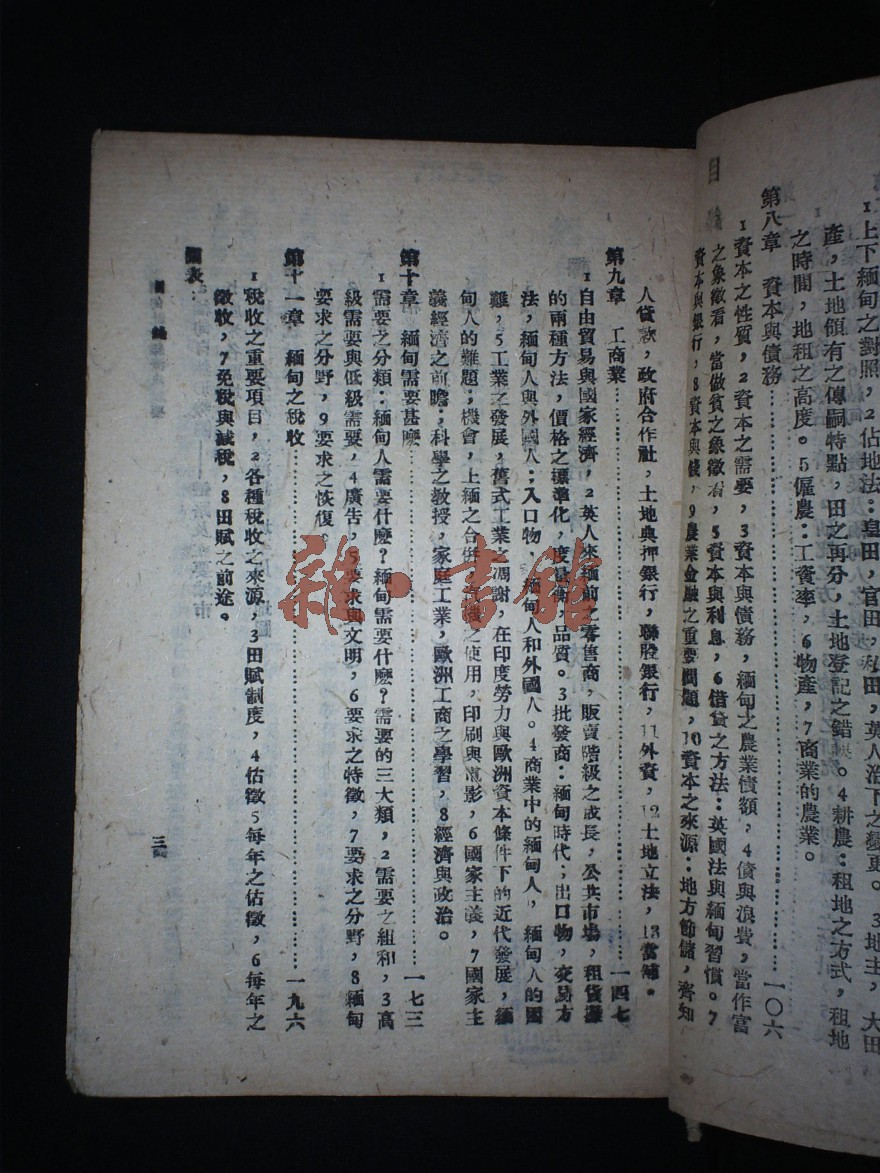 1上下緬甸之對照，2佔地法：皇田，官田，私田，英人治下之變更。3地主，大田
產，土地領有之傳嗣特點，田之再分，土地登記之錯。4耕農：租地之方式，租地
之時間，地租之高度。5僱農：工資率，6物產，7商業的農業。
目
第八章　資本與債務……一〇六
1資本之性質，2資本之需要，3資本與債務，緬甸之農業債額，4債與浪費，當作富
之象徵看，當做貧之象徵看，5資本與利息，6借貸之方法：英國法與緬甸習慣。7
資本與銀行，8資本與錢，9農業金融之重要問題，10資本之來源：地方節儲，齊知
人貸款，政府合作社，土地典押銀行，聯股銀行，11外資，12土地立法，13當舖。
第九章　工商業……一四七
1自由貿易與國家經濟，2英人來緬前之零售商，販賣階級之成長，公共市場，租貨
的兩種方法，價格之標準化，度量衡，品質。3批發商：緬甸時代；出口物，交易方
法，緬甸人與外國人；入口物，緬甸人和外國人。4商業中的緬甸人，緬甸人的困
難，5工業之發展，舊式工業之凋謝，在印度勞力與歐洲資本條件下的近代發展，緬
甸人的難題；機會，上緬之合併，汽機之使用，印刷與電影，6國家主義，7國家主
義經濟之前瞻；科學之教授，家庭工業，歐洲工商之學習，8經濟與政治。
第十章　緬甸需要甚麽……一七三
1需要之分類：緬甸人需要什麽？緬甸需要什麽？需要的三大類，2需要之組和，3高
級需要與低級需要，4廣告，5要求與文明，6要求之特徵，7要求之分野，8緬甸
要求之分野，9要求之恢復。
第十一章　緬甸之稅收……一九六
1稅收之重要項目，2各種稅收之來源，3田賦制度，4估徵5每年之估徵，6每年之
徵收，7免稅與減稅，8田賦之前途。
圖表：
三
雜·書館